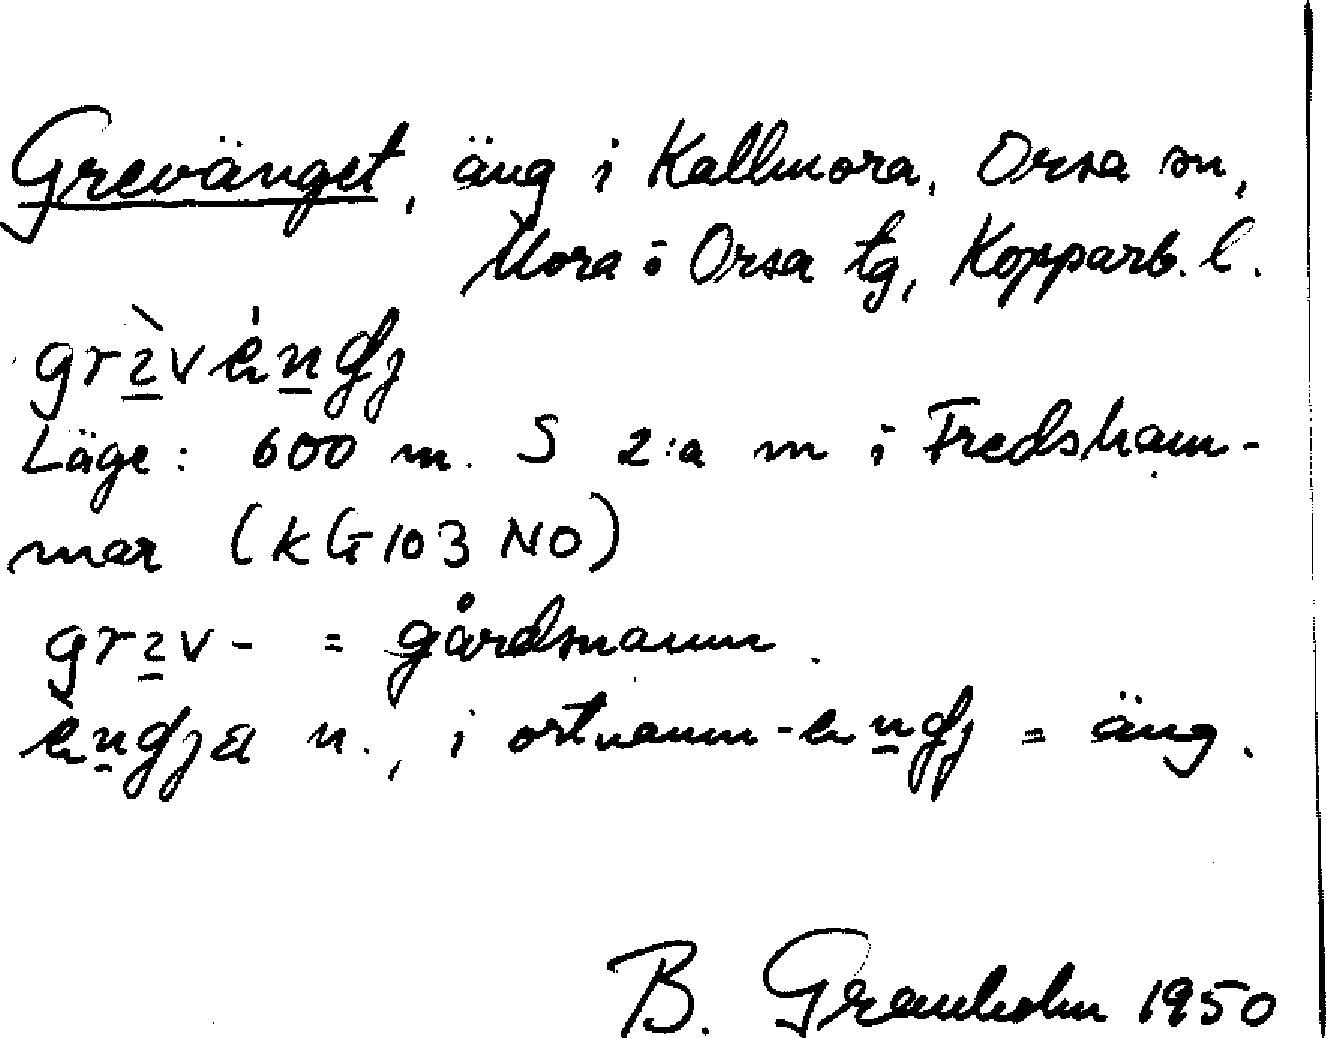 Grevänget, äng i Kallmora, Orsa sn,
Mora o Orsa tg, Kopparb. l.
Läge: 600 m. S 2:a m i Fredsham-
mar (KG103 NO)
grzv- = gårdsnamn.
n., i ortnamn = äng.
B. Granholm 1950